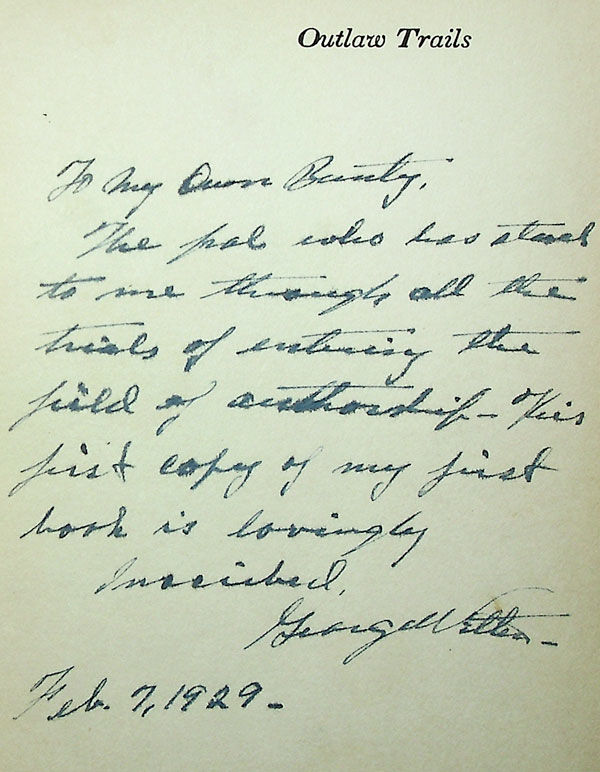 Outlaw Trails
To My Own Bunty,
The pal who has stuck
to me through all the
trials of entering the
field of authorship - This
first copy of my first
book is lovingly
Inscribed,
George Witten -
Feb. 7, 1929 -